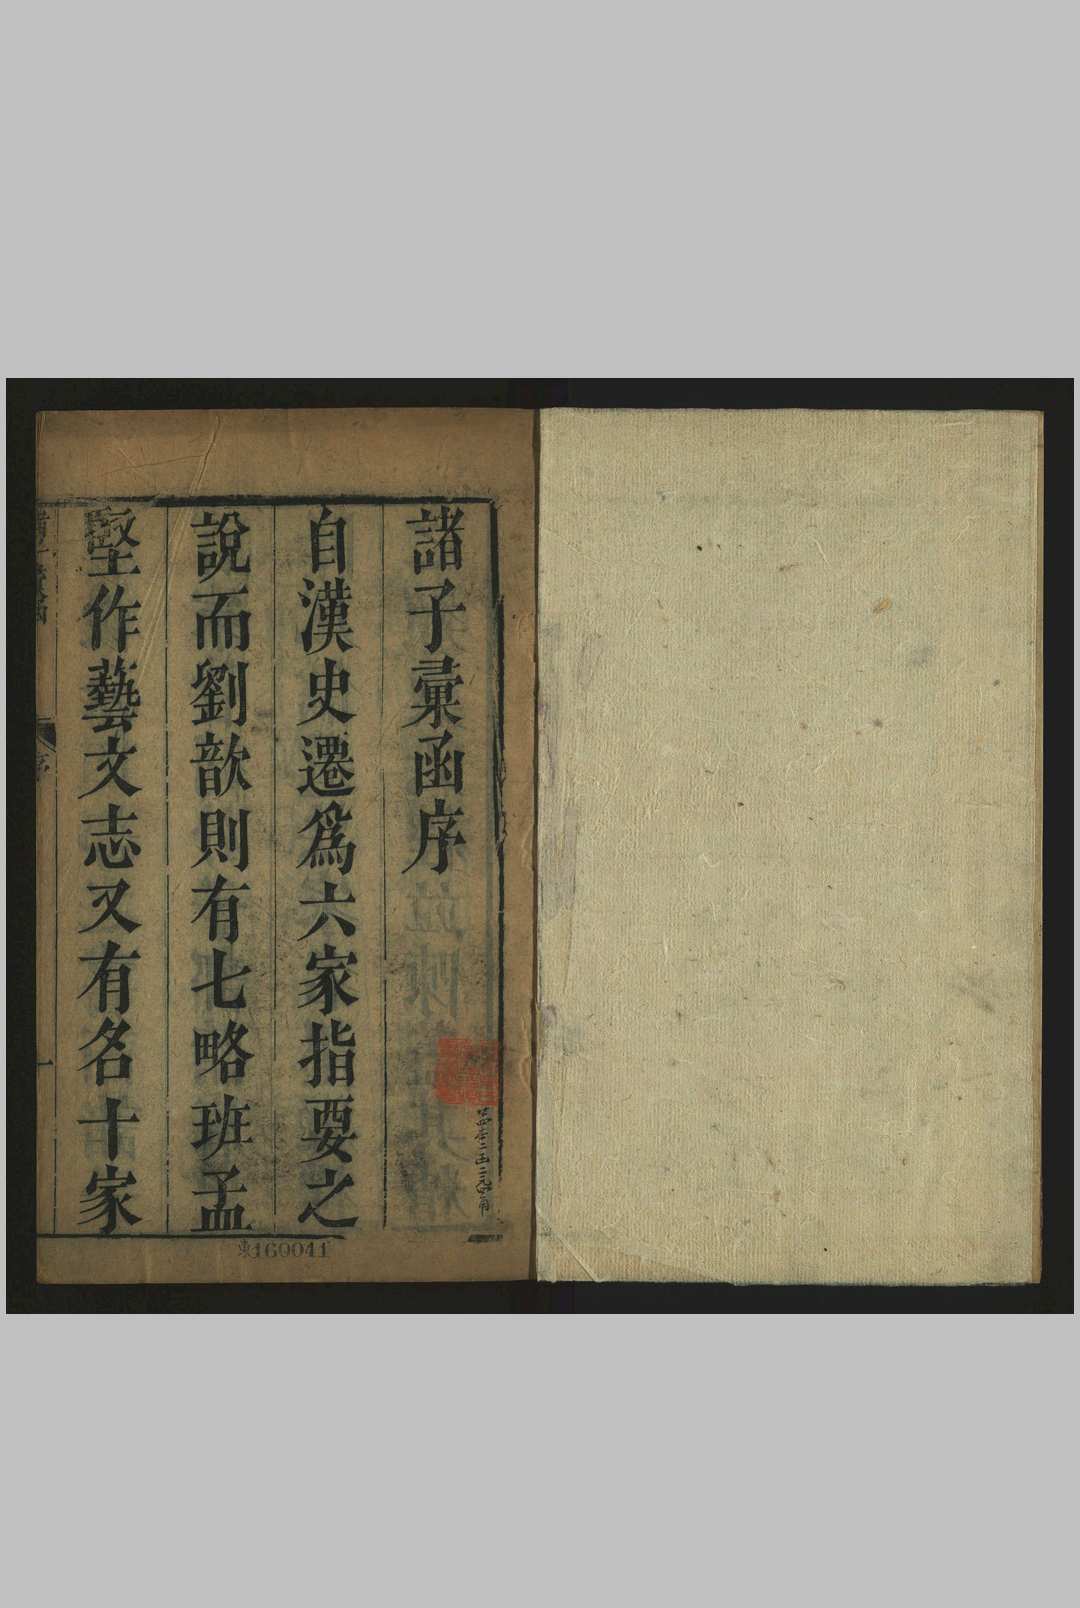 諸子彙函序
自漢史遷爲六家指要之
說而劉歆則有七略班孟
堅作藝文志又有名十家
序
一
東160041